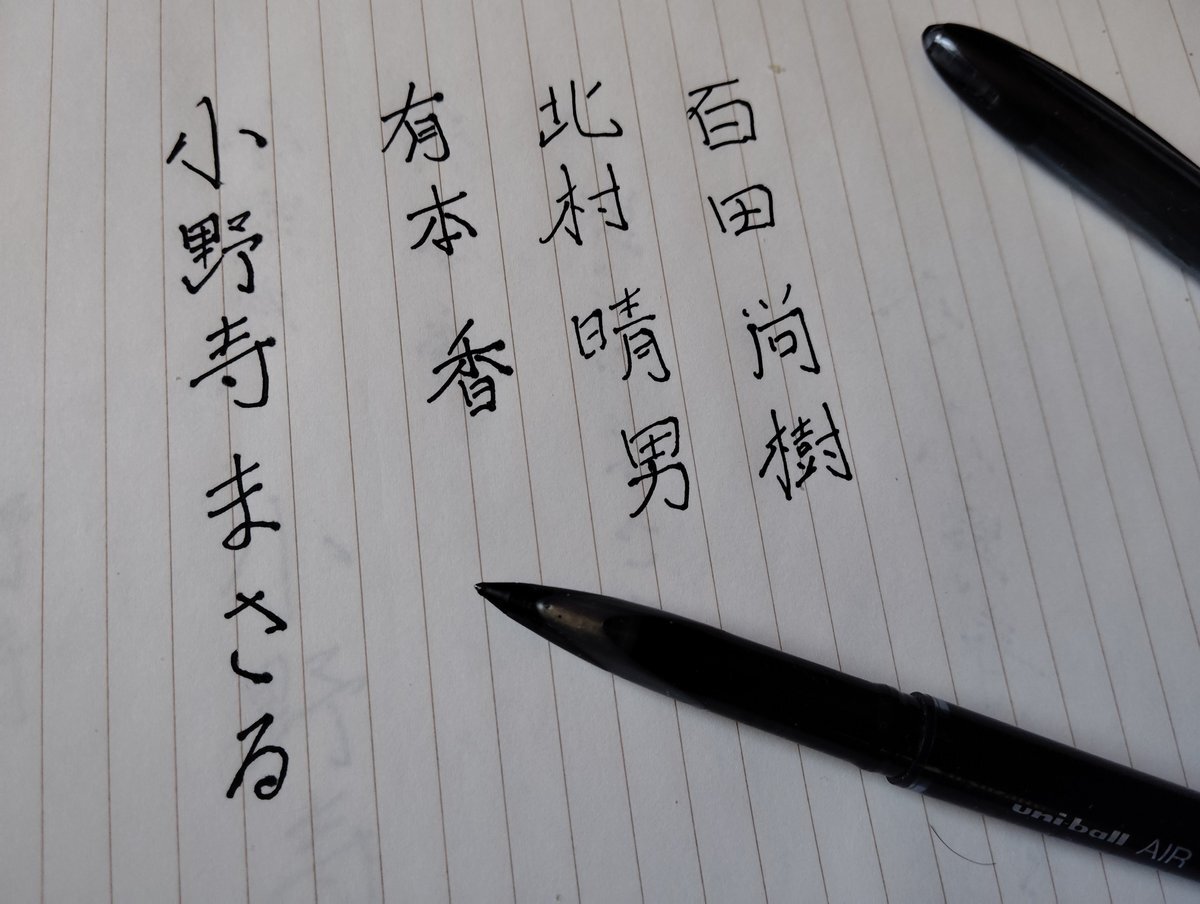 百田尚樹
北村晴男
有本香
小野寺まさる
uni-ball AIR